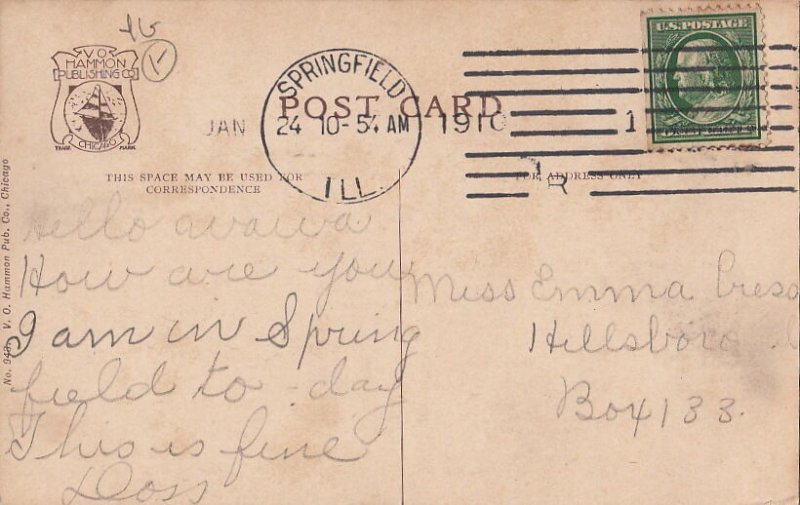 V.O.
HAMMON
PUBLISHING CO
TRADE CHICAGO MARK
POST CARD
THIS SPACE MAY BE USED FOR
CORRESPONDENCE
FOR ADDRESS ONLY
U.S. POSTAGE
SPRINGFIELD
JAN 24 10-5 AM 1910
ILL.
1
R
No. 94 V. O. Hammon Pub. Co., Chicago
Hello
How are you
I am in Spring
field to-day
This is fine
Doss
Miss Emma
Hillsboro
Box 133.